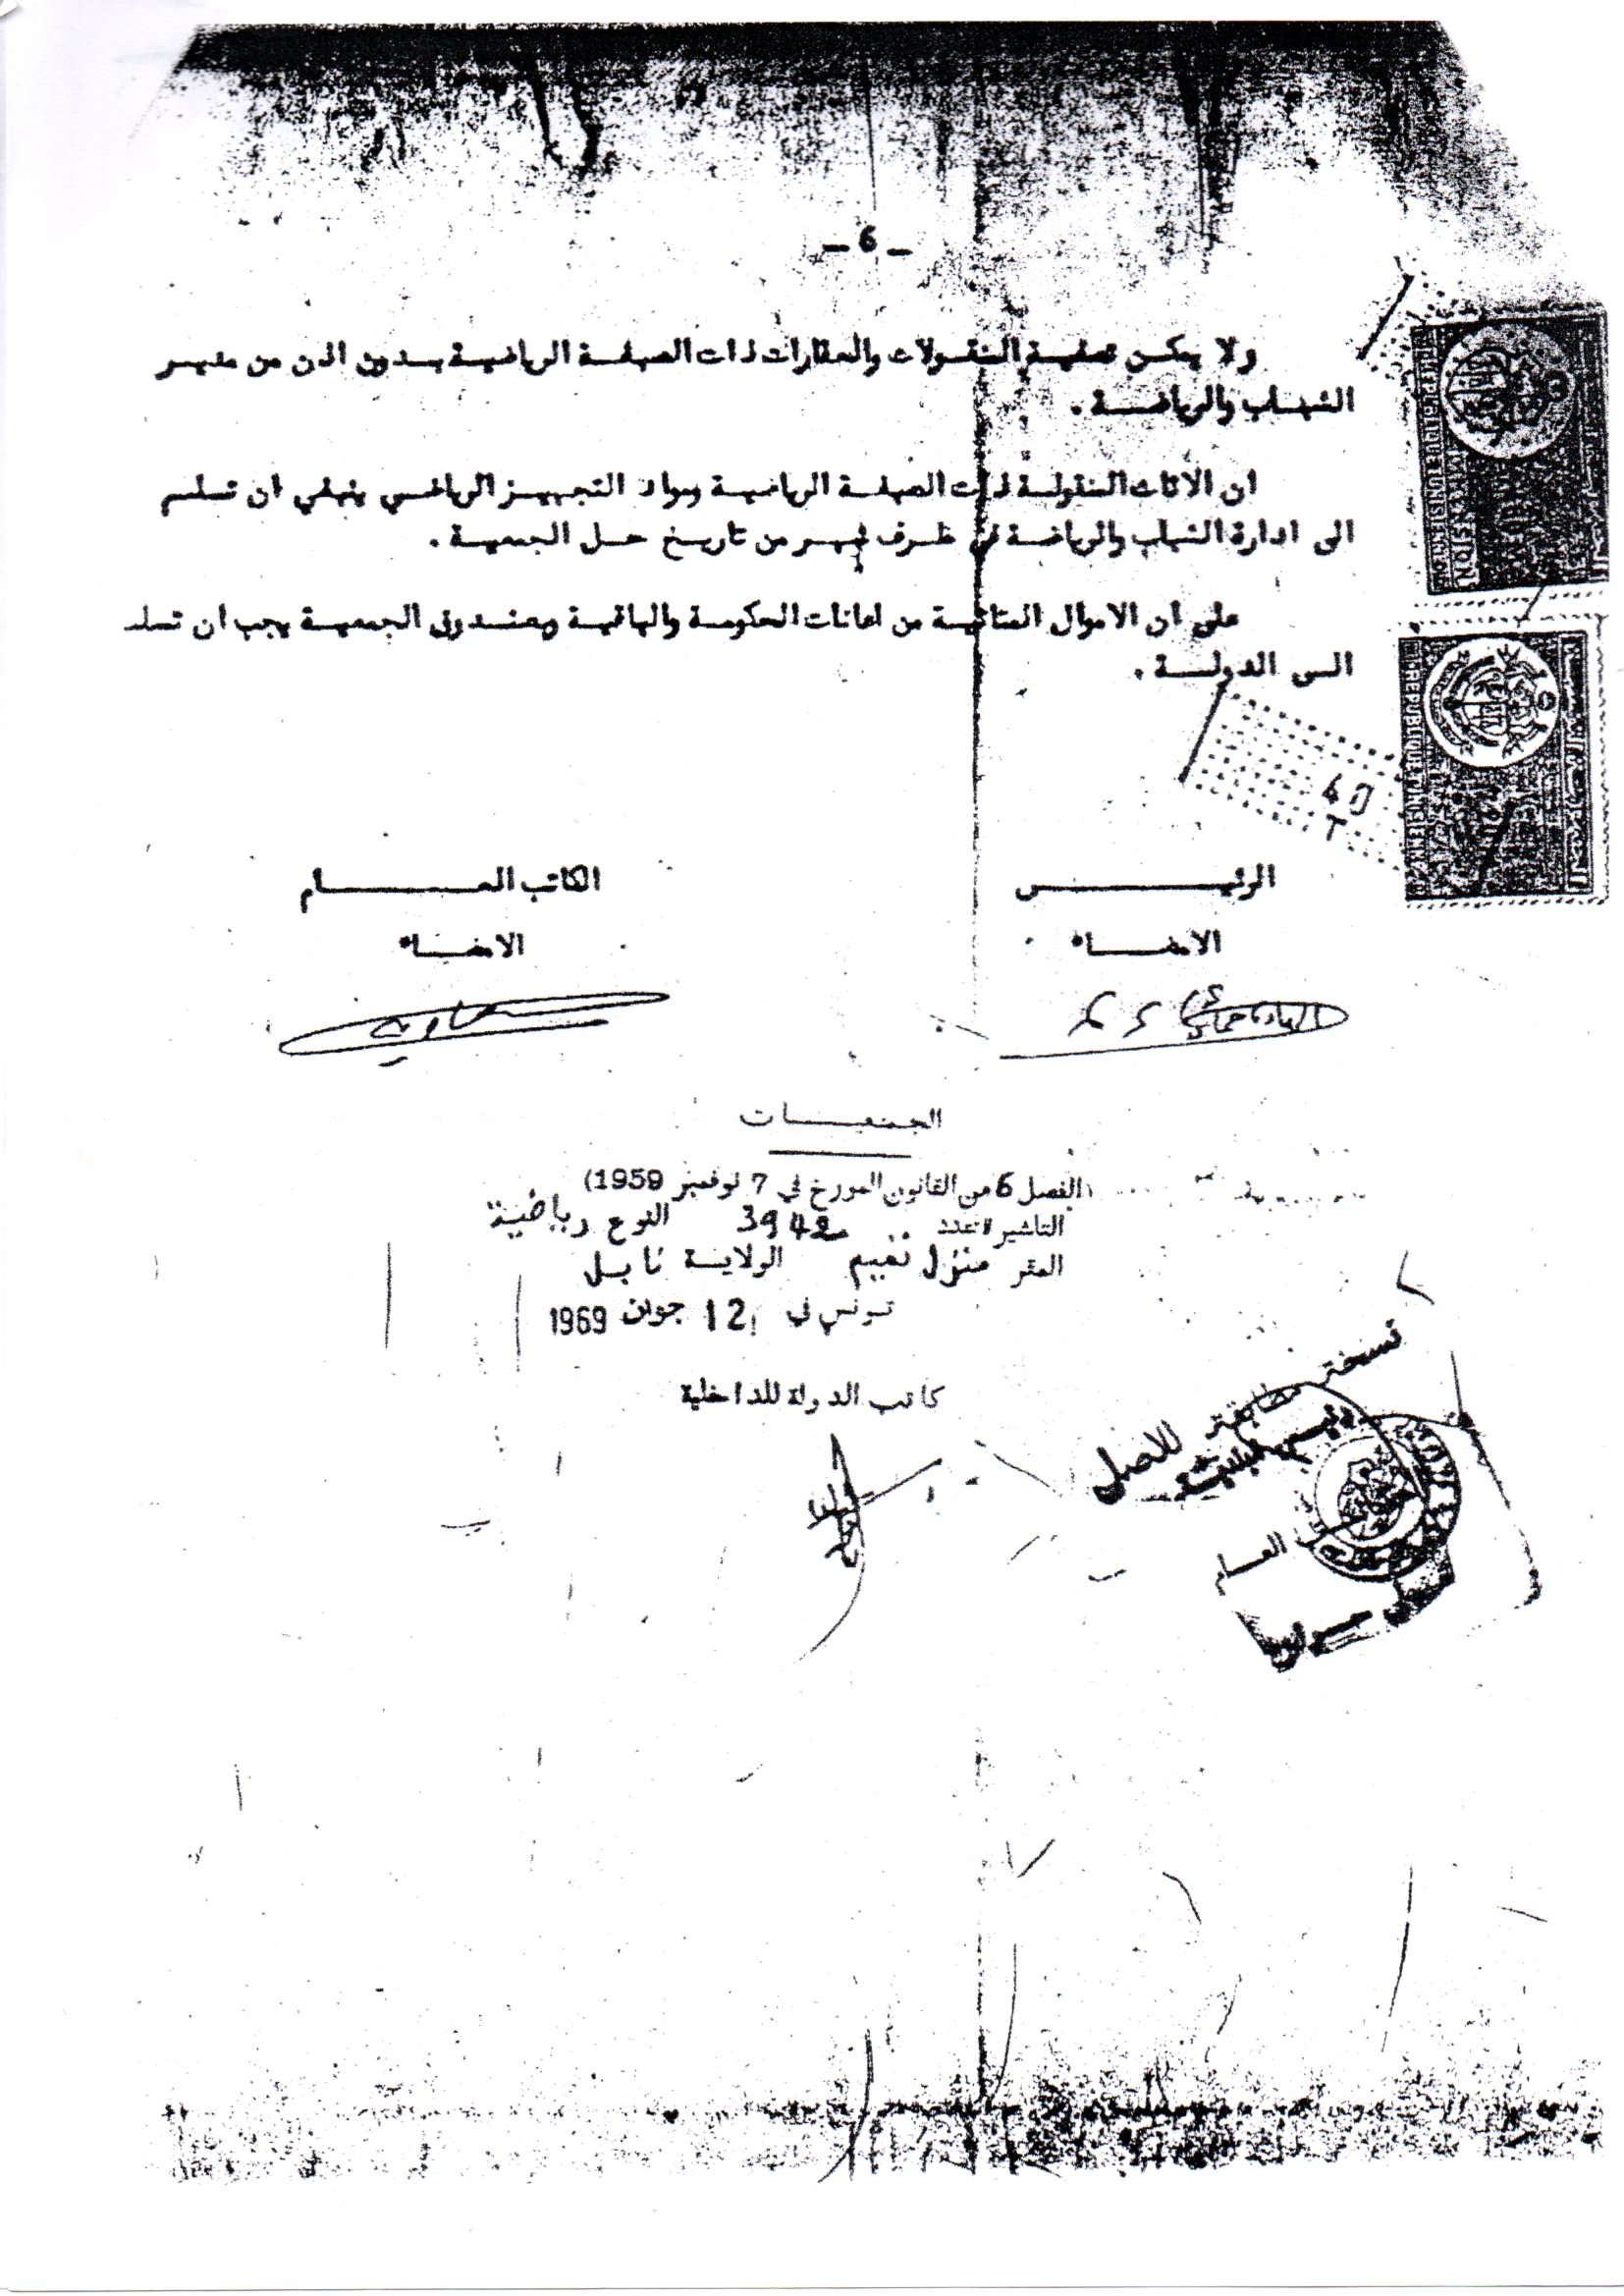 - 6 -
ولا يمكن تصفية المنقولات والعقارات ذات الصبغة الرياضية بدون اذن من مدير
الشباب والرياضة .
ان الاثاث المنقولة ذات الصبغة الرياضية ومواد التجهيز الرياضي ينبغي ان تسلم
الى ادارة الشباب والرياضة في ظرف شهر من تاريخ حل الجمعية .
على ان الاموال المتأتية من اعانات الحكومة والباقية بصندوق الجمعية يجب ان تسلم
الى الدولة .
الرئيس
الكاتب العام
الامضاء
الامضاء
الجمعيات
(الفصل 6 من القانون المؤرخ في 7 نوفمبر 1959)
التاشيرة عدد 3942 النوع رياضية
المقر منزل تميم الولاية نابل
تونس في 12 جوان 1969
كاتب الدولة للداخلية
نسخة مطابقة للاصل
رئيس البلدية
العام
REPUBLIQUE TUNISIENNE